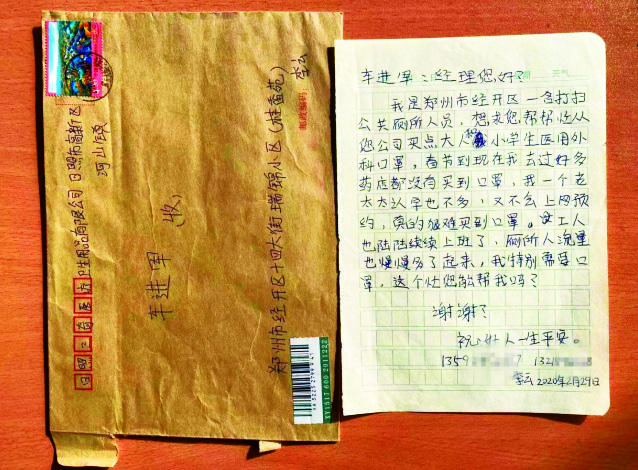 车进军：经理您好？
天气
我是郑州市经开区一名打扫
公共厕所人员，想求您帮帮忙从
您公司买点大人和小学生医用外
科口罩，春节到现在我去过好多
药店都没有买到口罩，我一个老
太太认字也不多，又不会上网预
约，真的很难买到口罩。工人
也陆陆续续上班了，厕所人流量
也慢慢多了起来，我特别需要口
罩，这个忙您能帮我吗？
谢谢？
祝好人一生平安。
1359 7 132 8
李云2020年2月29日
日照市高新区
河山镇
卫生用品有限公司
车进军（收）
郑州市经开区十四大街瑞锦小区（桂香苑）
李云
邮政编码
XY1517 600 2011222